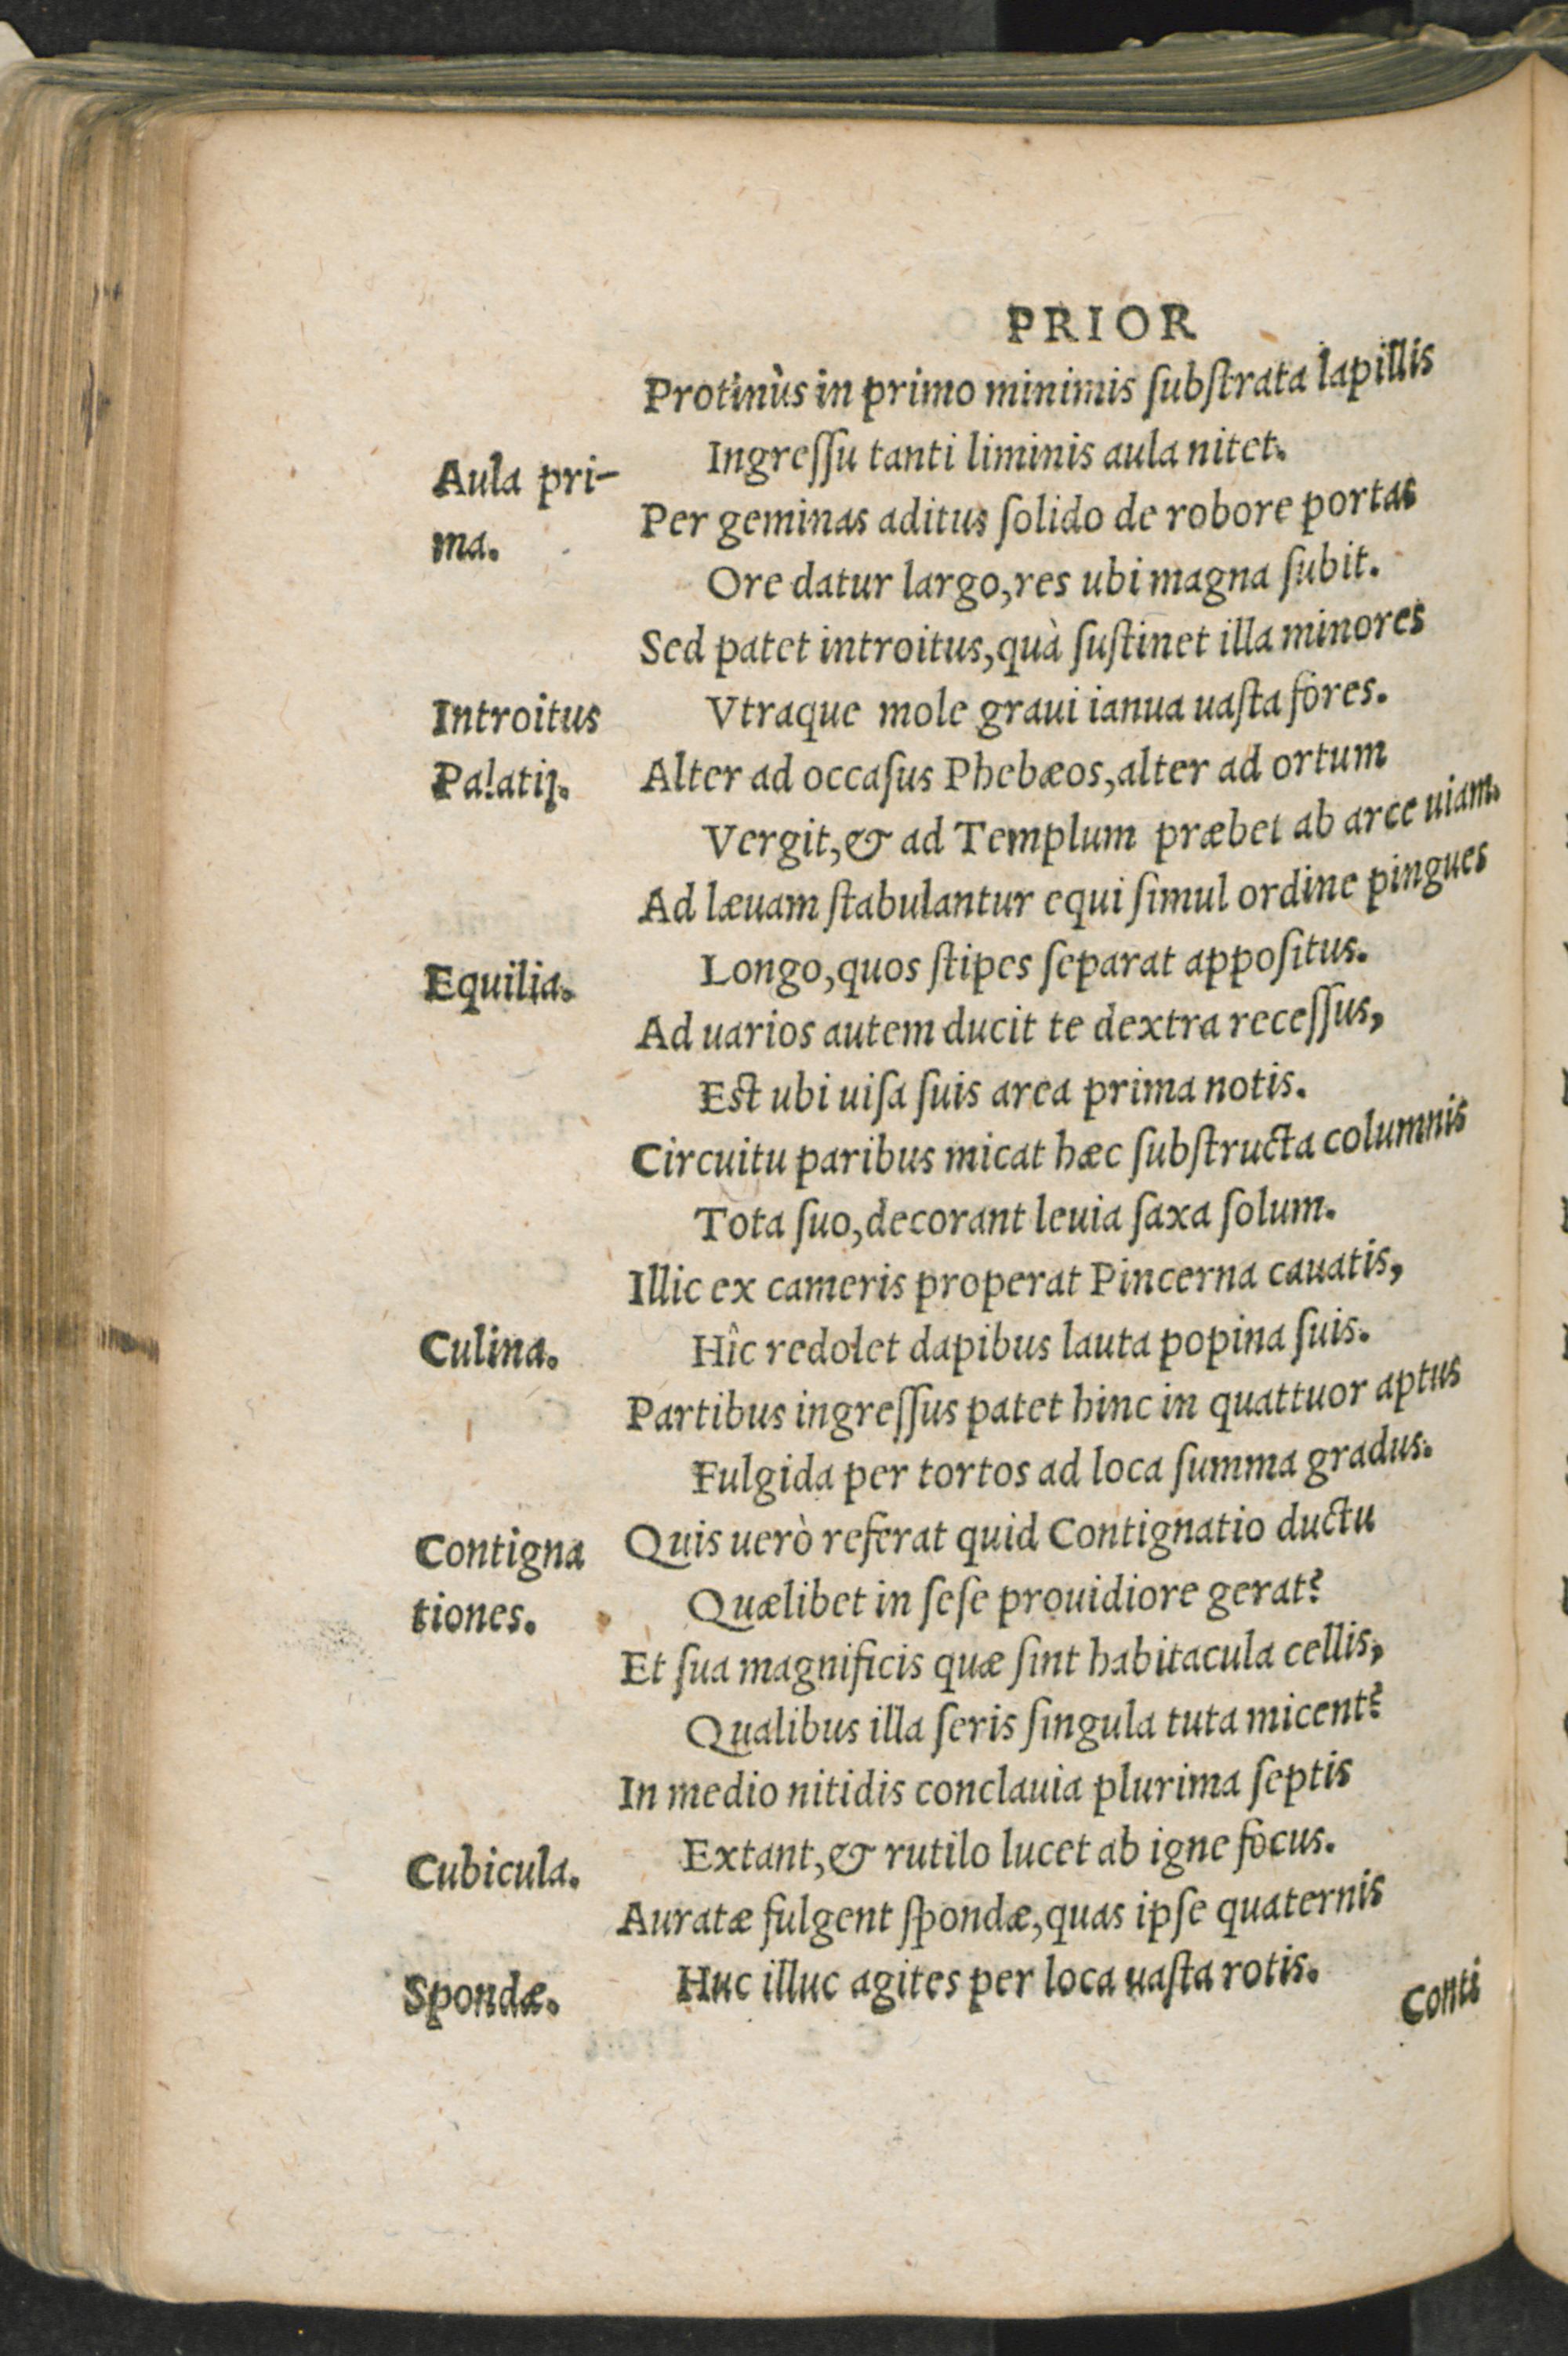 PRIOR
Protinùs in primo minimis ſubſtrata lapillis
Ingreſſu tanti liminis aula nitet.
Aula pri-
ma.
Per geminas aditus ſolido de robore portas
Ore datur largo,res ubi magna ſubit.
Sed patet introitus,quà ſuſtinet illa minores
Introitus
Palatij.
Vtraque mole graui ianua uaſta fores.
Alter ad occaſus Phebæos,alter ad ortum
Vergit,& ad Templum præbet ab arce uiam.
Ad læuam ſtabulantur equi ſimul ordine pingues
Equilia.
Longo,quos ſtipes ſeparat appoſitus.
Ad uarios autem ducit te dextra receſſus,
Eſt ubi uiſa ſuis area prima notis.
Circuitu paribus micat hæc ſubſtructa columnis
Tota ſuo,decorant leuia ſaxa ſolum.
Illic ex cameris properat Pincerna cauatis,
Culina.
Hîc redolet dapibus lauta popina ſuis.
Partibus ingreſſus patet hinc in quattuor aptus
Fulgida per tortos ad loca ſumma gradus.
Contigna
tiones.
Quis uerò referat quid Contignatio ductu
Quælibet in ſeſe prouidiore gerat?
Et ſua magnificis quæ ſint habitacula cellis,
Qualibus illa ſeris ſingula tuta micent?
In medio nitidis conclauia plurima ſeptis
Cubicula.
Extant,& rutilo lucet ab igne focus.
Auratæ fulgent ſpondæ,quas ipſe quaternis
Spondæ.
Huc illuc agites per loca uaſta rotis.
Conti